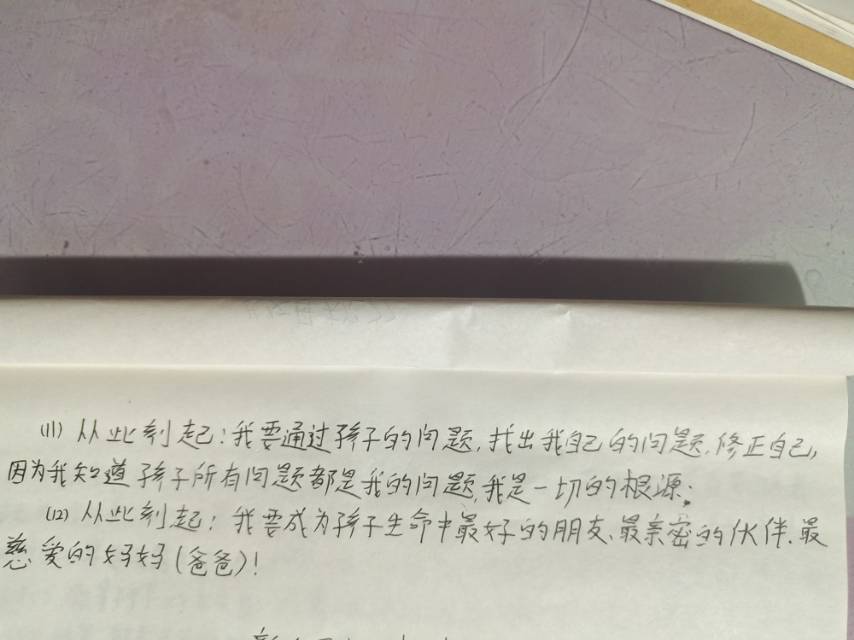 (11) 从此刻起:我要通过孩子的问题,找出我自己的问题,修正自己,
因为我知道孩子所有问题都是我的问题,我是一切的根源;
(12) 从此刻起:我要成为孩子生命中最好的朋友、最亲密的伙伴、最
慈爱的妈妈(爸爸)!